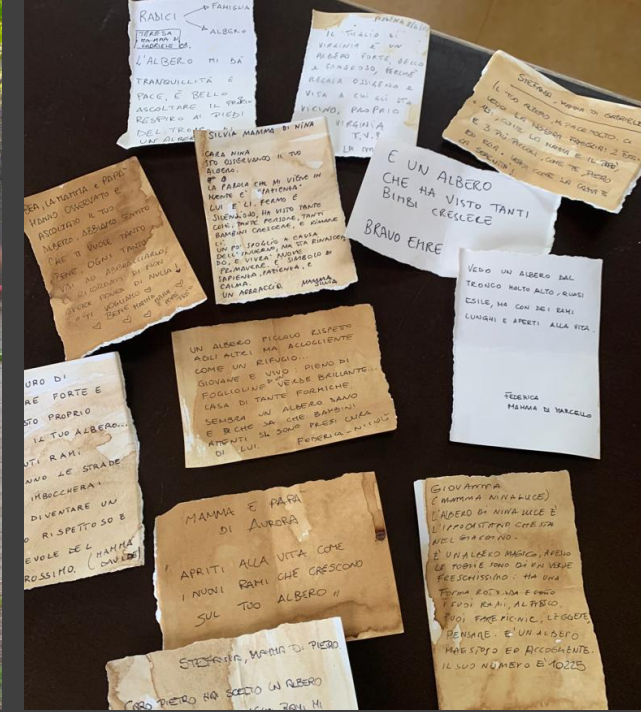 RADICI
FAMIGLIA
ALBERO
TERESA
MAMMA DI
GABRIELE
L'ALBERO MI DÀ
TRANQUILLITÀ E
PACE, È BELLO
ASCOLTARE IL
RESPIRO AI PIEDI
DEL
UN
IL TIGLIO DI
VIRGINIA È UN
ALBERO FORTE, BELLO
E PERCHÉ
REGALA OSSIGENO E
VITA A CHI GLI STA
VICINO, PROPRIO
VIRGINIA
T.V.B
STEFANIA, MAMMA DI GABRIELE
IL TUO ALBERO MI PIACE MOLTO. CI
VEDO LA NOSTRA FAMIGLIA: 2
COME LA MAMMA E IL PAPÀ
E 3 PIÙ PICCOLI, COME TE, PIETRO
ED
SILVIA MAMMA DI NINA
CARA NINA
STO OSSERVANDO IL TUO
ALBERO.
LA PAROLA CHE MI VIENE IN
MENTE È "PAZIENZA"
LUI È LÌ, FERMO E
SILENZIOSO, HA VISTO TANTE
COSE, TANTE PERSONE, TANTI
BAMBINI CRESCERE, E RIMANE
LÌ.
UN PO' SPOGLIO A CAUSA
DELL'INVERNO, MA STA RINASCEN
DO, E VIVRÀ NUOVE
PRIMAVERE. È SIMBOLO DI
SAPIENZA, PAZIENZA, E
CALMA.
UN ABBRACCIO MAMMA
È UN ALBERO
CHE HA VISTO TANTI
BIMBI CRESCERE
BRAVO EMRE
LA MAMMA E PAPÀ
HANNO OSSERVATO E
ASCOLTATO IL TUO
ALBERO, ABBIAMO SENTITO
CHE TI VUOLE TANTO
BENE, OGNI TANTO
VAI AD ABBRACCIARLO,
E RICORDATI DI NON
AVERE PAURA DI NULLA!
TI VOGLIAMO
BENE
VEDO UN ALBERO DAL
TRONCO MOLTO ALTO, QUASI
ESILE, MA CON DEI RAMI
LUNGHI E APERTI ALLA VITA.
FEDERICA
MAMMA DI MARCELLO
UN ALBERO PICCOLO RISPETTO
AGLI ALTRI MA ACCOGLIENTE
COME UN RIFUGIO...
GIOVANE E VIVO: PIENO DI
FOGLIOLINE DI VERDE BRILLANTE...
CASA DI TANTE FORMICHE.
SEMBRA UN ALBERO SANO
E CHE SA CHE BAMBINI
ATTENTI SI SONO PRESI CURA
DI LUI. FEDERICA-
URO DI
RE FORTE E
STO PROPRIO
IL TUO ALBERO...
UTI RAMI
NNO LE STRADE
IMBOCCHERAI
DIVENTARE UN
RISPETTOSO E
EVOLE DEL
ROSSIMO. (MAMMA
DAVIDE)
MAMMA E PAPÀ
DI AURORA
"APRITI ALLA VITA COME
I NUOVI RAMI CHE CRESCONO
SUL TUO ALBERO"
GIOVANNA
(MAMMA NINALUCE)
L'ALBERO DI NINALUCE È
L'IPPOCASTANO CHE STA
NEL GIARDINO.
È UN ALBERO MAGICO,
LE FOGLIE SONO DI UN VERDE
FRESCHISSIMO: HA UNA
FORMA ROTONDA E SOTTO
I SUOI RAMI, ALL'APICO,
PUOI FARE PICNIC, LEGGERE,
PENSARE. È UN ALBERO
MAESTOSO ED ACCOGLIENTE.
IL SUO NUMERO È 10225
STEFANIA, MAMMA DI PIETRO
CARO PIETRO HAI SCELTO UN ALBERO
RAMI MI